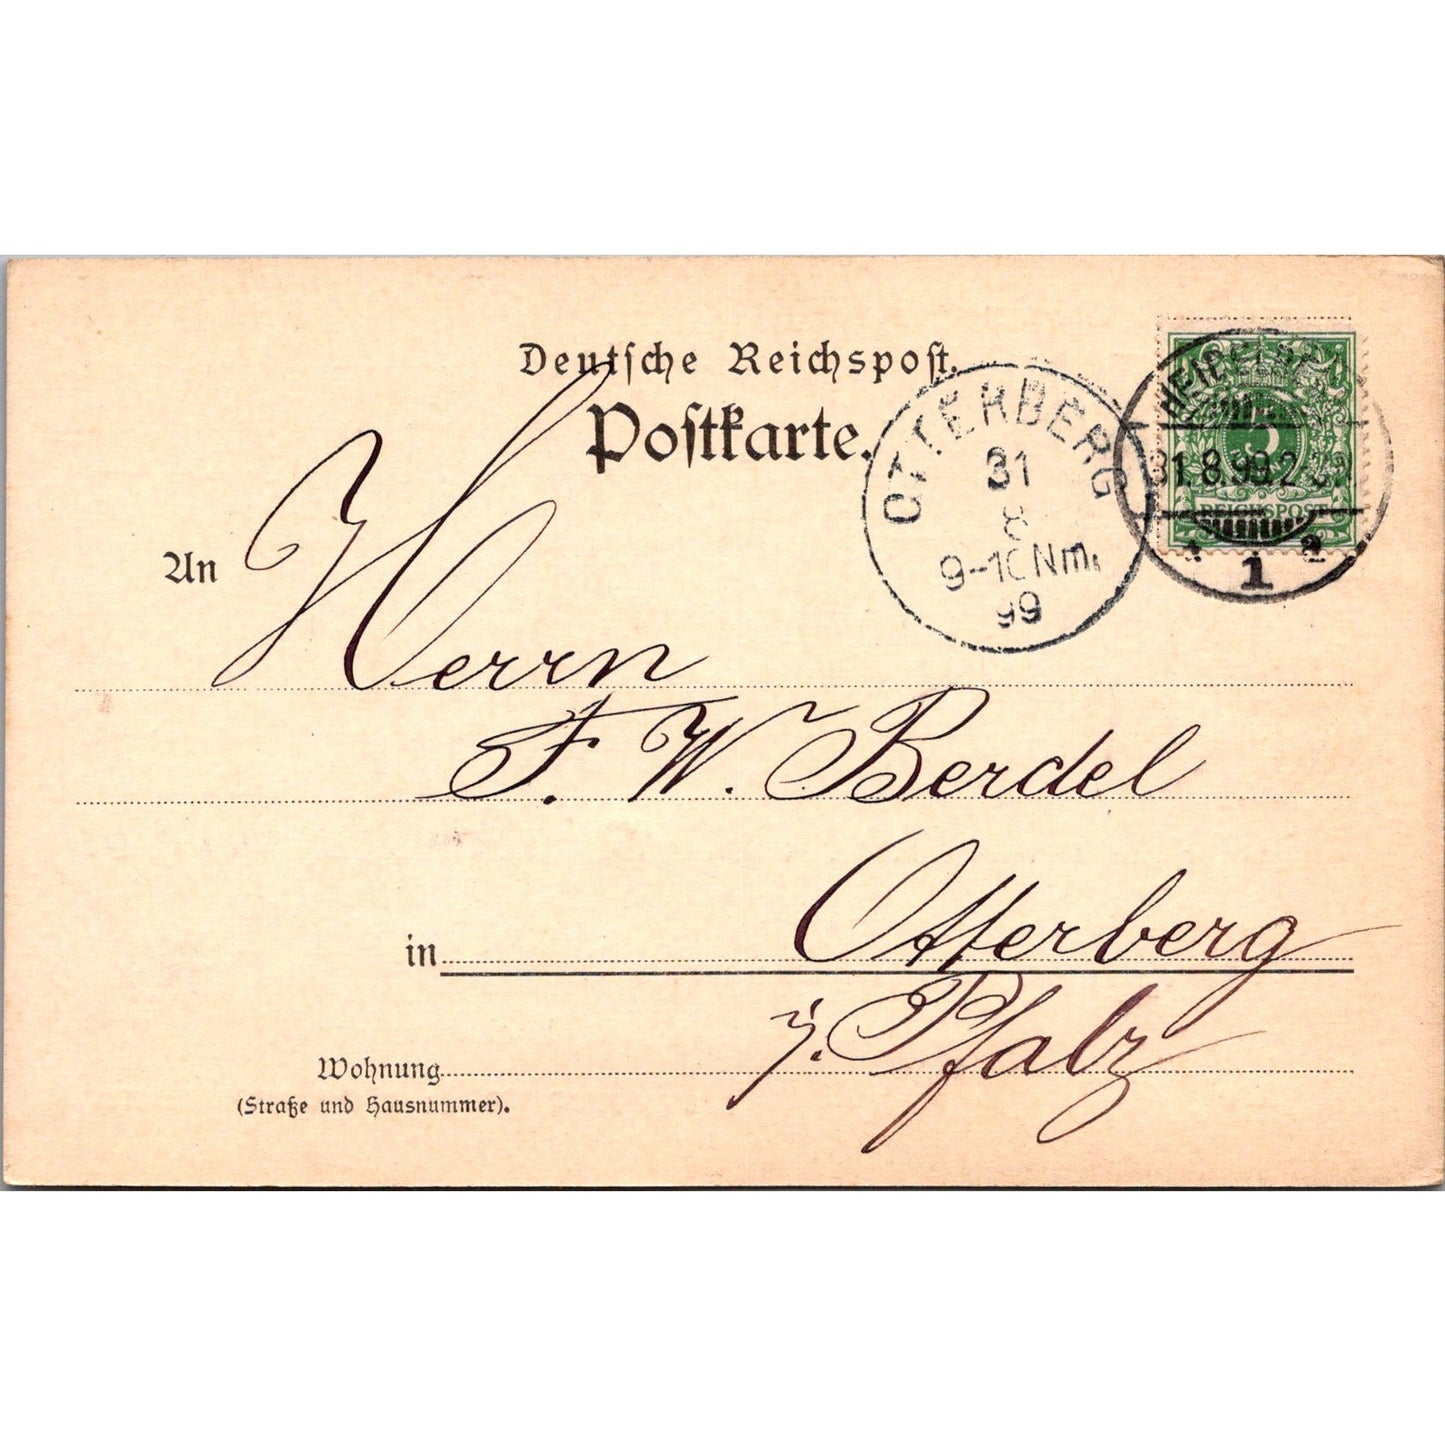 Deutsche Reichspost.
Postkarte.
OTTERBERG
31
8
9-10Nm.
99
31.8.99.2
5
REICHSPOST
1
An Herrn
F. W. Berdel
in Otterberg
Pfalz
Wohnung
(Straße und Hausnummer).